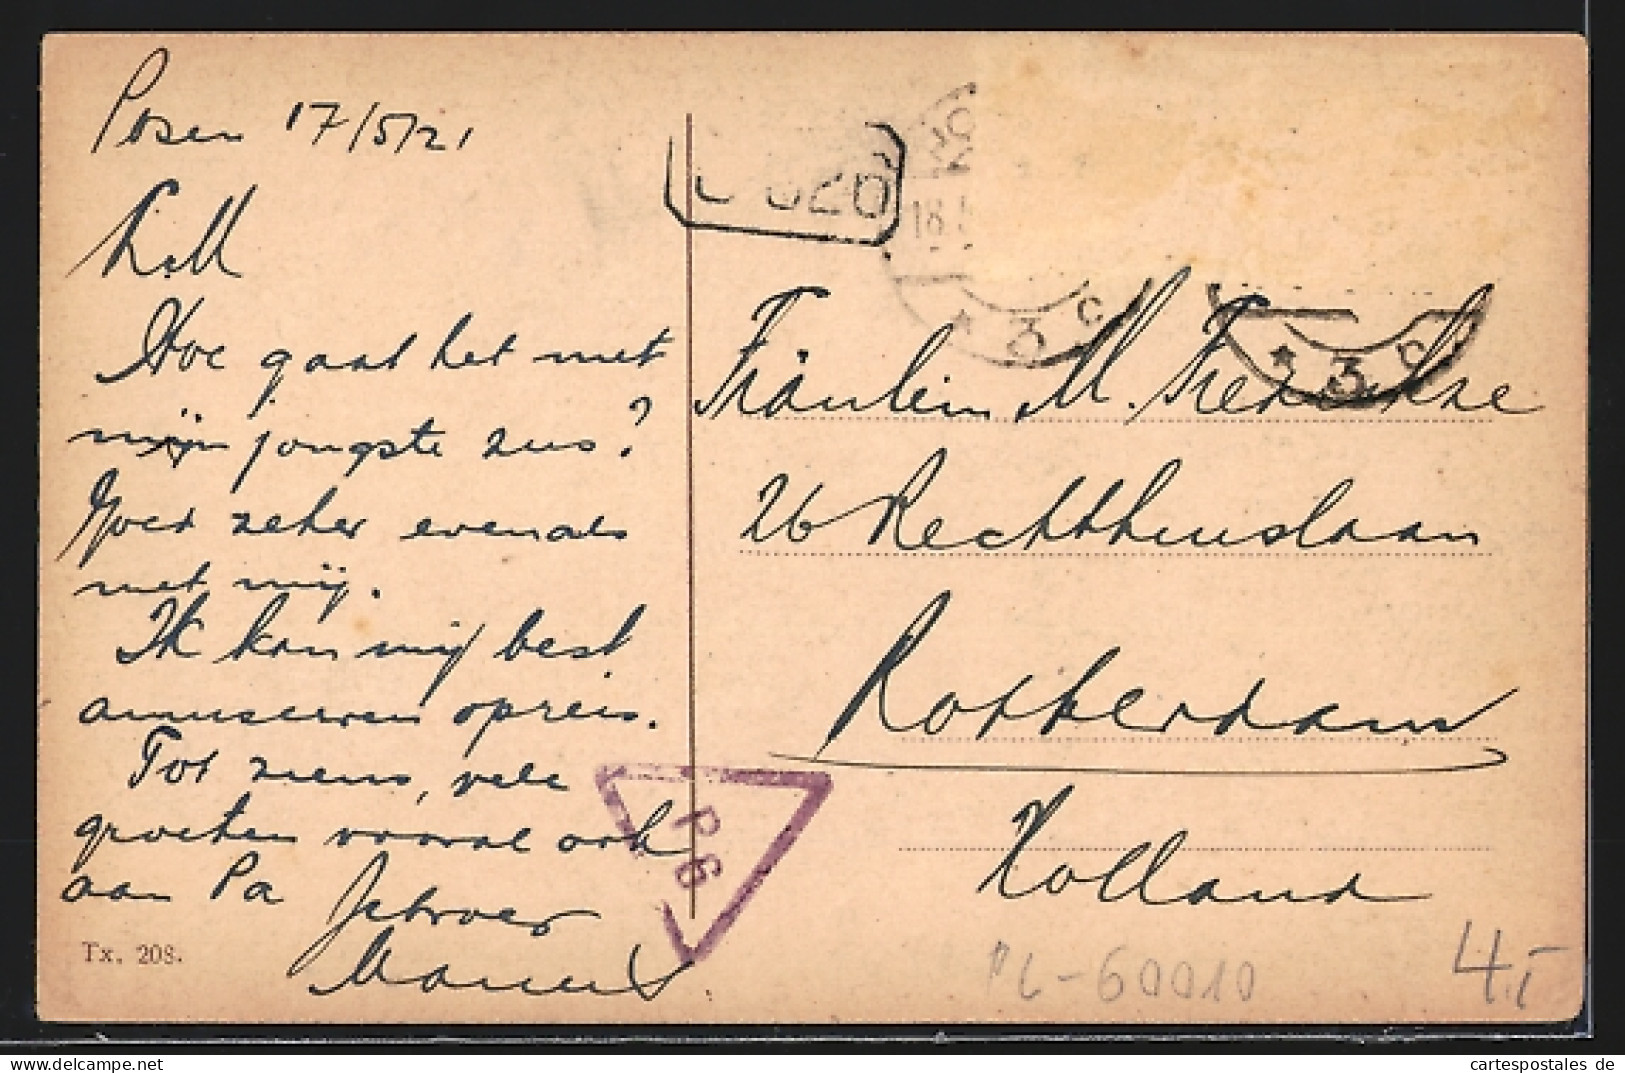 Posen 17/5/21
Hoe gaat het met
mijn jongste zus?
Goed zeker evenals
met mij.
Ik kan mij best
amuseeren op reis.
Tot ziens, vele
groeten vooral ook
aan Pa
Tx. 208.
18.5
* 3 c
* 3 c
Fräulein M.
26 Rechthuislaan
Rotterdam
Holland
P 6
PL-60010
4,-
cartespostales de